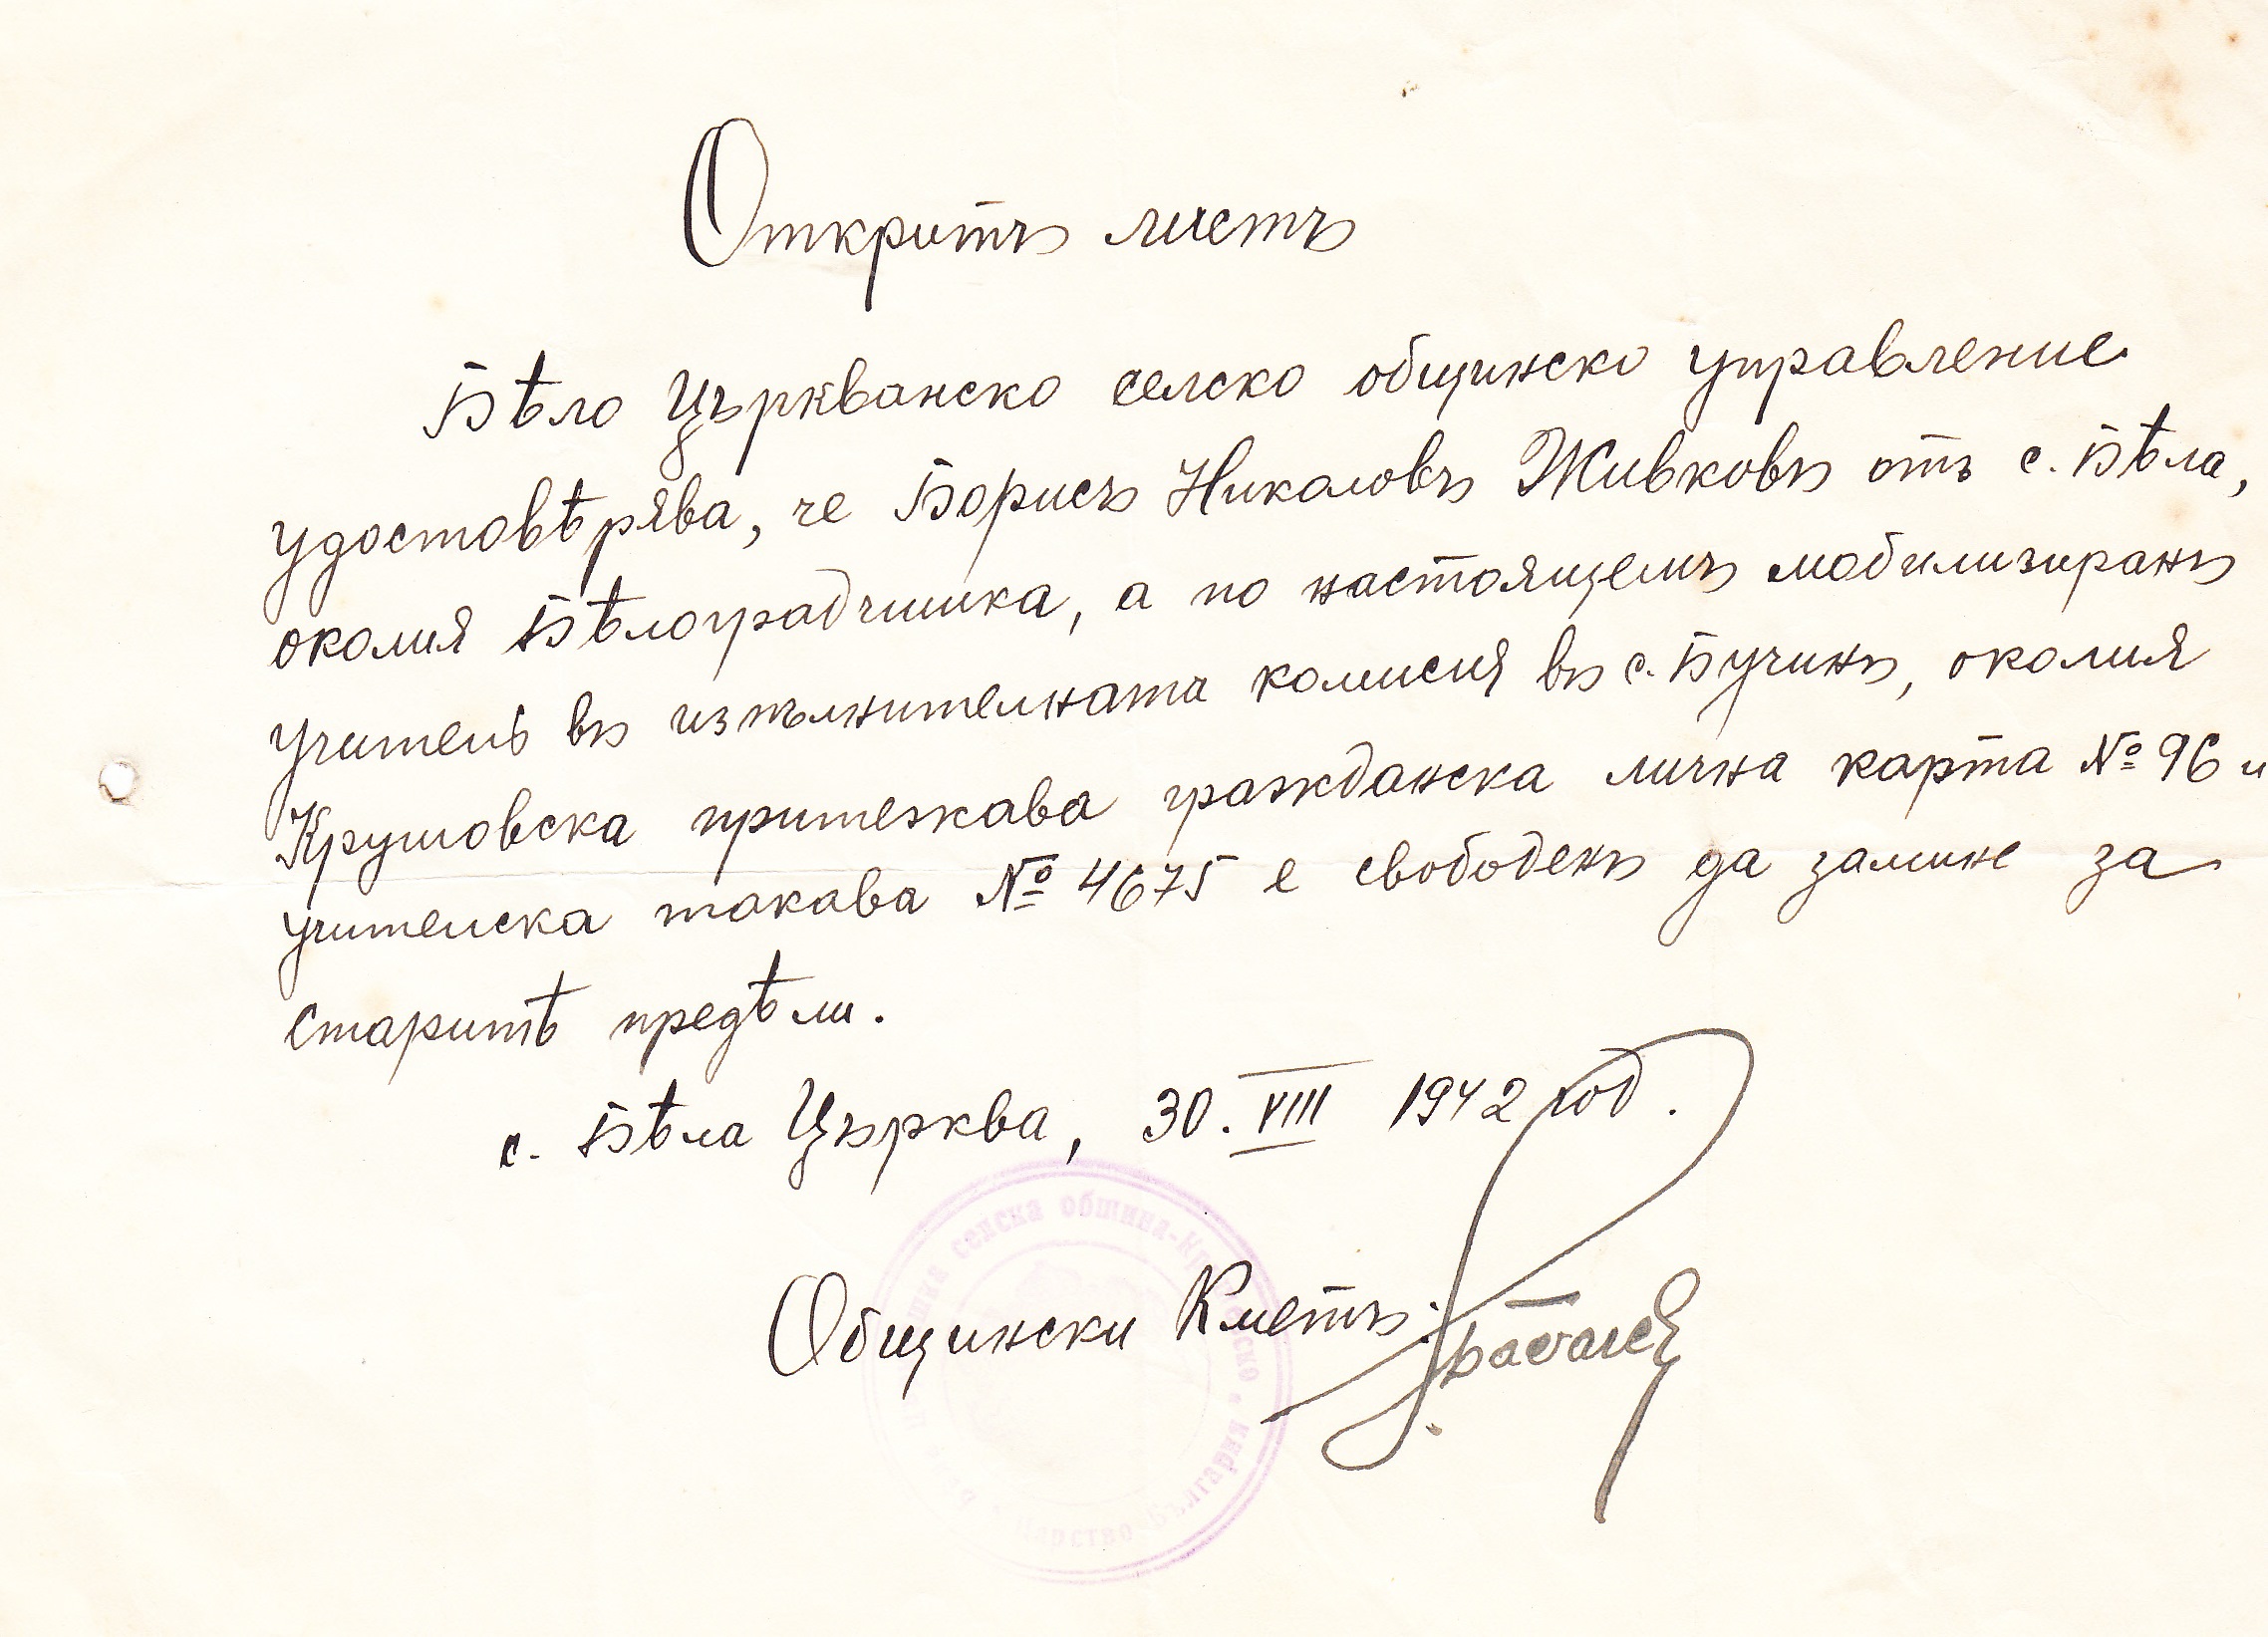 Открить листъ
Бѣло Църкванско селско общинско управление
удостовѣрява, че Борисъ Николовъ Живковъ отъ с. Бѣла,
околия Бѣлоградчишка, а по настоящемъ мобилизиранъ
учитель въ изпълнителната комисия въ с. Бучинъ, околия
Крушовска притежава гражданска лична карта № 96 и
учителска такава № 4675 е свободенъ да замине за
старитѣ предѣли.
с. Бѣла Църква, 30. VIII 1942 год.
Общински Кметъ:
селска община-
Царство България